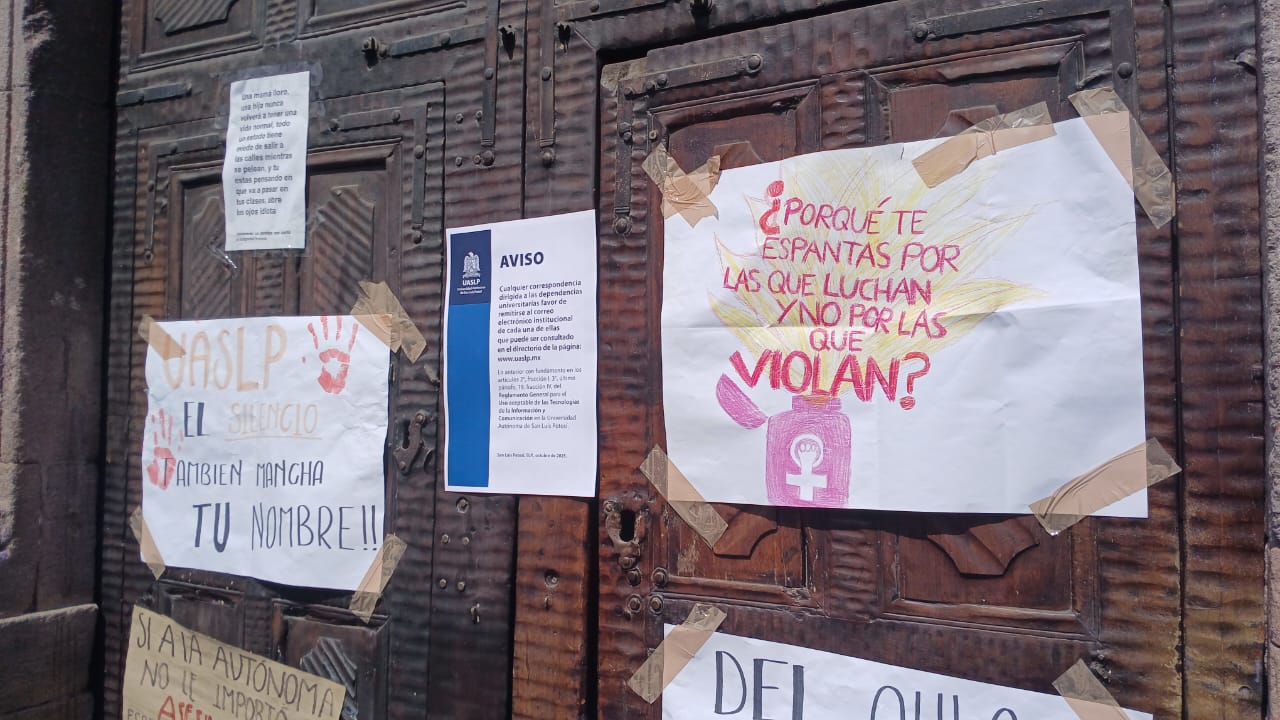 una mamá lloro,
una hija nunca
volverá a tener una
vida normal, todo
un estado tiene
miedo de salir a
las calles mientras
se pelean, y tu
estas pensando en
que va a pasar en
tus clases, abre
los ojos idiota
UASLP
EL SILENCIO
TAMBIEN MANCHA
TU NOMBRE!!
SI A LA AUTÓNOMA
NO LE IMPORTÓ
UASLP
Universidad Autónoma
de San Luis Potosí
AVISO
Cualquier correspondencia
dirigida a las dependencias
universitarias favor de
remitirse al correo
electrónico institucional
de cada una de ellas
que puede ser consultado
en el directorio de la página:
www.uaslp.mx
Lo anterior con fundamento en los
artículos 2°, fracción I, 3°, último
párrafo, 19, fracción IV, del
Reglamento General para el
Uso aceptable de las Tecnologías
de la Información y
Comunicación en la Universidad
Autónoma de San Luis Potosí.
San Luis Potosí, SLP, octubre de 2025.
¿PORQUÉ TE
ESPANTAS POR
LAS QUE LUCHAN
Y NO POR LAS
QUE
VIOLAN?
DEL